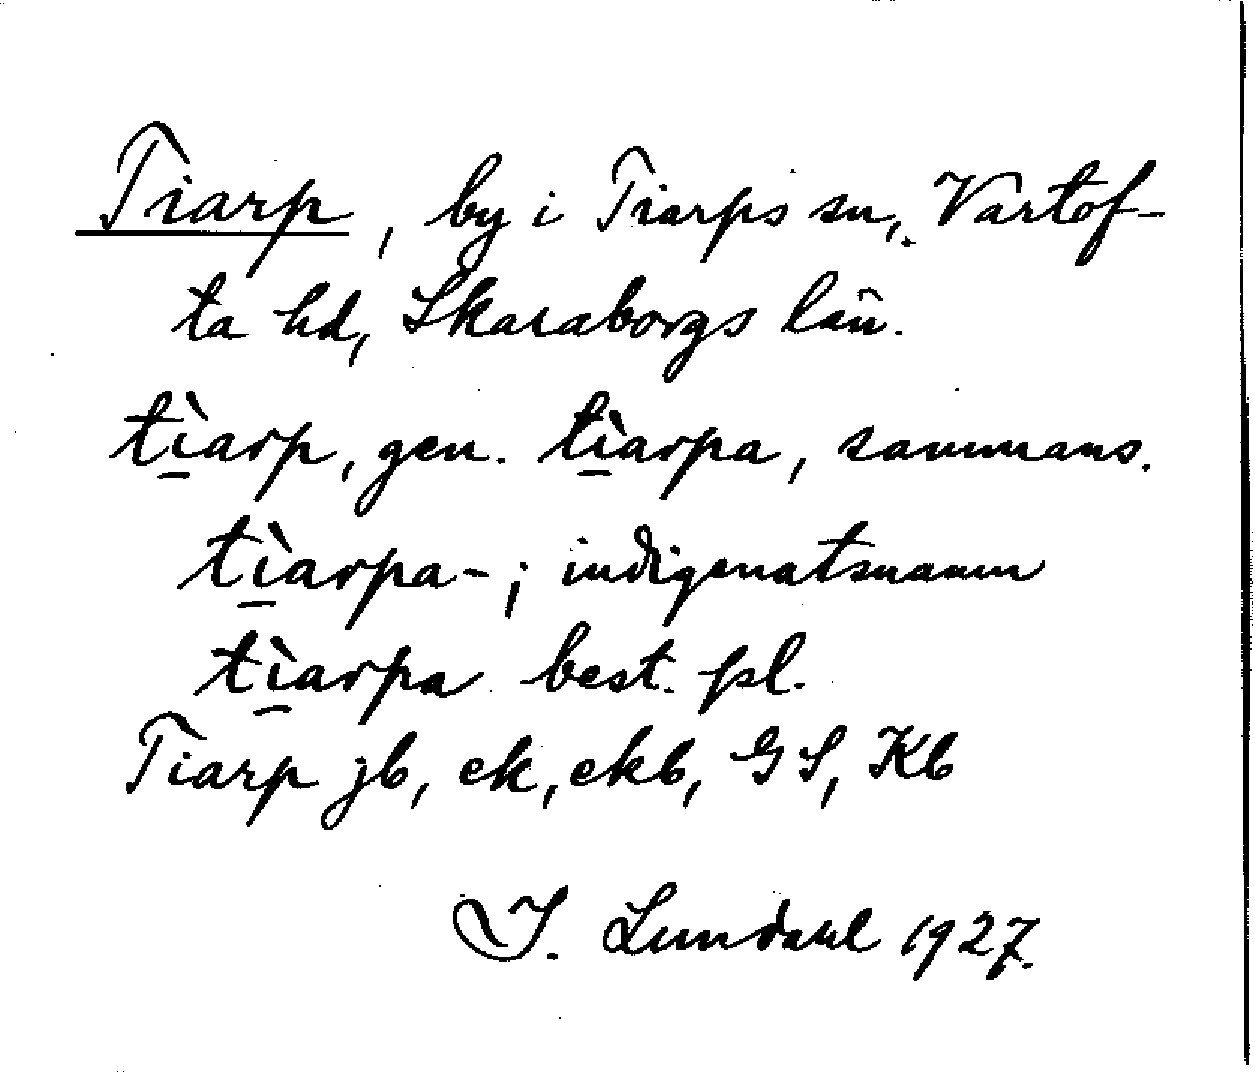 Tiarp, by i Tiarps sn, Vartof-
ta hd, Skaraborgs län.
tı̠̀arp, gen. tı̠̀arpa, sammans.
tı̠̀arpa-; indigenatsnamn
tı̠̀arpa best. pl.
Tiarp jb, ek, ekb, GS, Kb
I. Lundahl 1927.